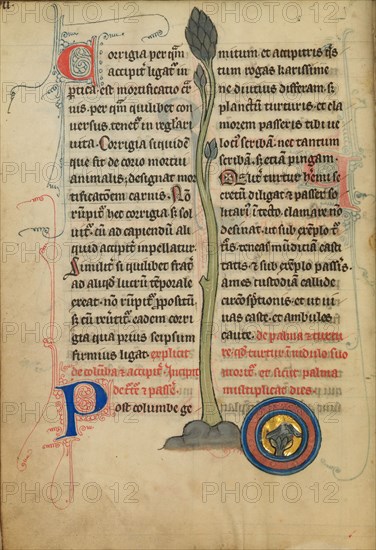 Corrigia per qm
accipit ligat in
ptica est mortificatio car
nis. per qm quilibet con
uersus tenet in reglari
uita. Corrigia siquidem
que fit de corio mortui
animalis, designat mor
tificatoem carnis. Non
rupit hec corrigia si sol
uit. cum ad capiendum ali
quid accipit impellatur.
Similit si quilibet frat
ad aliquod lucrum temporale
exeat. non rumpit propositum
si cum reuerit eadem corri
gia qua prius seipsum
firmius ligat. explicit
de columba & accipit. Incipit
de turture & passere.
Post columbe ge
mitum et accipitris
tum rogas karissime
ne diutius differam. si
planctum turturis. et cla
morem passeris tibi ve
locius scribam. nec tantum
scribam. set etiam pingam.
turtur heremi se
cretum diligat & passer so
litarius in tecto clamare no
desinat. ut sub exemplo tur
turis teneas mundiciam casti
tatis. & sub exemplo passis
ames custodiam callide
circumspectionis. et ut ui
uas caste. et ambules
caute. de palma & turtu
re. est turtur in nidulo suo
mortus et sicut palma
multiplicabo dies.
PHOTO12